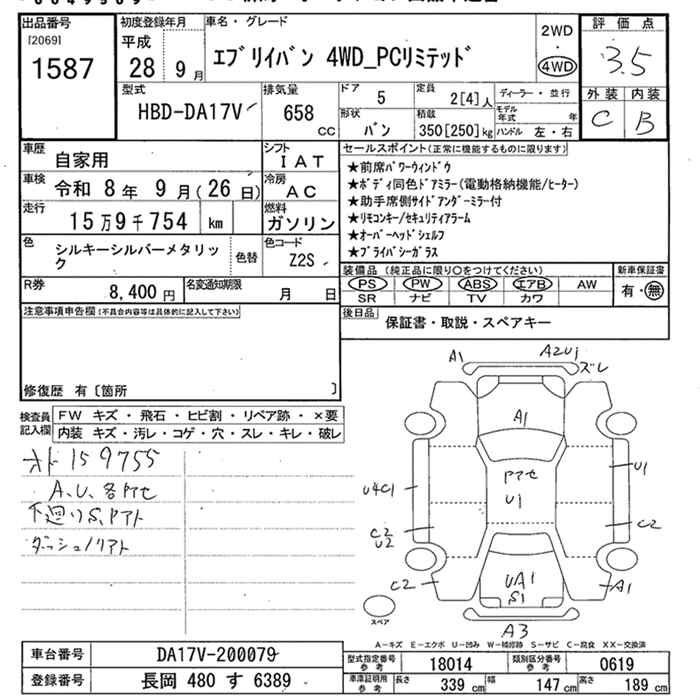 出品番号
[2069]
1587
初度登録年月
平成
28 9 月
車名・グレード
ｴﾌﾞﾘｲﾊﾞﾝ 4WD_PCﾘﾐﾃｯﾄﾞ
2WD
・
4WD
評価点
3.5
外装 内装
C B
型式
HBD-DA17V
排気量
658
cc
ドア
5
定員
2[4]人
形状
バン
積載
350[250]kg
ディーラー・並行
モデル年式 年
ハンドル 左・右
車歴
自家用
シフト
IAT
車検
令和 8年 9月(26日)
冷房
AC
走行
15万9千754 km
燃料
ガソリン
色
シルキーシルバーメタリック
色替
色コード
Z2S
R券
8,400 円
名変通知期限
月 日
セールスポイント(正常に機能するものに限ります)
★前席ﾊﾟﾜｰｳｨﾝﾄﾞｳ
★ﾎﾞﾃﾞｨ同色ﾄﾞｱﾐﾗｰ(電動格納機能/ﾋｰﾀｰ)
★助手席側ｻｲﾄﾞｱﾝﾀﾞｰﾐﾗｰ付
★ﾘﾓｺﾝｷｰ/ｾｷｭﾘﾃｨｱﾗｰﾑ
★ｵｰﾊﾞｰﾍｯﾄﾞｼｪﾙﾌ
★ﾌﾟﾗｲﾊﾞｼｰｶﾞﾗｽ
装備品(純正品に限り○をつけてください)
PS PW ABS エアB AW
SR ナビ TV カワ
新車保証書
有・無
後日品
保証書・取説・スペアキー
注意事項申告欄(不具合内容等は具体的に記入して下さい)
修復歴 有〔箇所 〕
検査員記入欄
FW キズ・飛石・ヒビ割・リペア跡・×要
内装 キズ・汚レ・コゲ・穴・スレ・キレ・破レ
オド159755
A、U、各アセ
下廻りS、アアト
ダッシュノリアト
A1
A2U1
ズレ
A1
アアセ
U1
U4C1
U1
C2
U2
C2
C2
UA1
S1
A1
A3
スペア
A－キズ E－エクボ U－凹み W－補修跡 S－サビ C－腐食 XX－交換済
車台番号
DA17V-200079
登録番号
長岡 480 す 6389
型式指定番号
参考
18014
類別区分番号
参考
0619
車庫証明用
参考
長さ
339 cm
幅
147 cm
高さ
189 cm